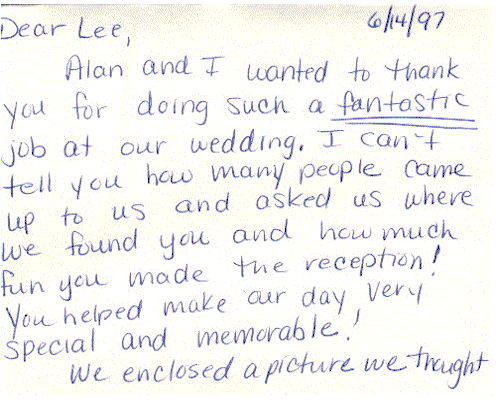 6/14/97
Dear Lee,
Alan and I wanted to thank
you for doing such a fantastic
job at our wedding. I can't
tell you how many people came
up to us and asked us where
we found you and how much
fun you made the reception!
You helped make our day very
special and memorable!
We enclosed a picture we thought